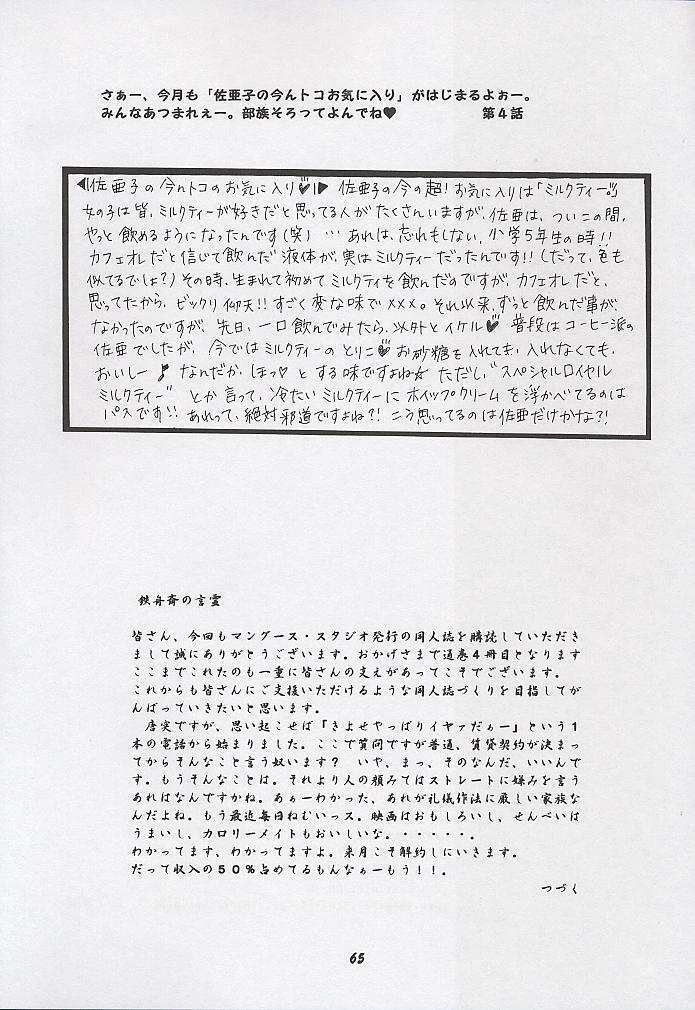 さぁー、今月も「佐亜子の今んトコお気に入り」がはじまるよぉー。
みんなあつまれぇー。部族そろってよんでね♥　第４話
◀佐亜子の今んトコのお気に入り♥!▶ 佐亜子の今の超!お気に入りは「ミルクティー」。
女の子は皆、ミルクティーが好きだと思ってる人がたくさんいますが、佐亜は、ついこの間、
やっと飲めるようになったんです(笑) …あれは、忘れもしない、小学5年生の時!!
カフェオレだと信じて飲んだ液体が、実はミルクティーだったんです!!(だって、色も
似てるでしょ?)その時、生まれて初めてミルクティを飲んだのですが、カフェオレだと、
思ってたから、ビックリ仰天!!すごく変な味で×××。それ以来、ずっと飲んだ事が、
なかったのですが、先日、一口飲んでみたら、以外とイケル♥ 普段はコーヒー派の
佐亜でしたが、今ではミルクティーのとりこ♥お砂糖を入れても、入れなくても、
おいしー♪ なんだか、ほっ♡とする味ですよね☆ ただし、"スペシャルロイヤル
ミルクティー"とか言って、冷たいミルクティーにホイップクリームを浮かべてるのは
パスです!!あれって、絶対邪道ですよね?!こう思ってるのは佐亜だけかな?!
鉄舟斎の言霊
皆さん、今回もマングース・スタジオ発行の同人誌を購読していただき
まして誠にありがとうございます。おかげさまで通巻４冊目となります
ここまでこれたのも一重に皆さんの支えがあってこそでございます。
これからも皆さんにご支援いただけるような同人誌づくりを目指してが
んばっていきたいと思います。
唐実ですが、思い起こせば「きよせやっぱりイヤァだぁー」という１
本の電話から始まりました。ここで質問ですが普通、賃貸契約が決まっ
てからそんなこと言う奴います？　いや、まっ、そのなんだ、いいんで
す。もうそんなことは。それより人の顔みてはストレートに嫌みを言う
あれはなんですかね。あぁーわかった、あれが礼儀作法に厳しい家族な
んだよね。もう最近毎日ねむいっス。映画はおもしろいし、せんべいは
うまいし、カロリーメイトもおいしいな。・・・・・。
わかってます、わかってますよ。来月こそ解約しにいきます。
だって収入の５０％占めてるもんなぁーもう！！。
つづく
65